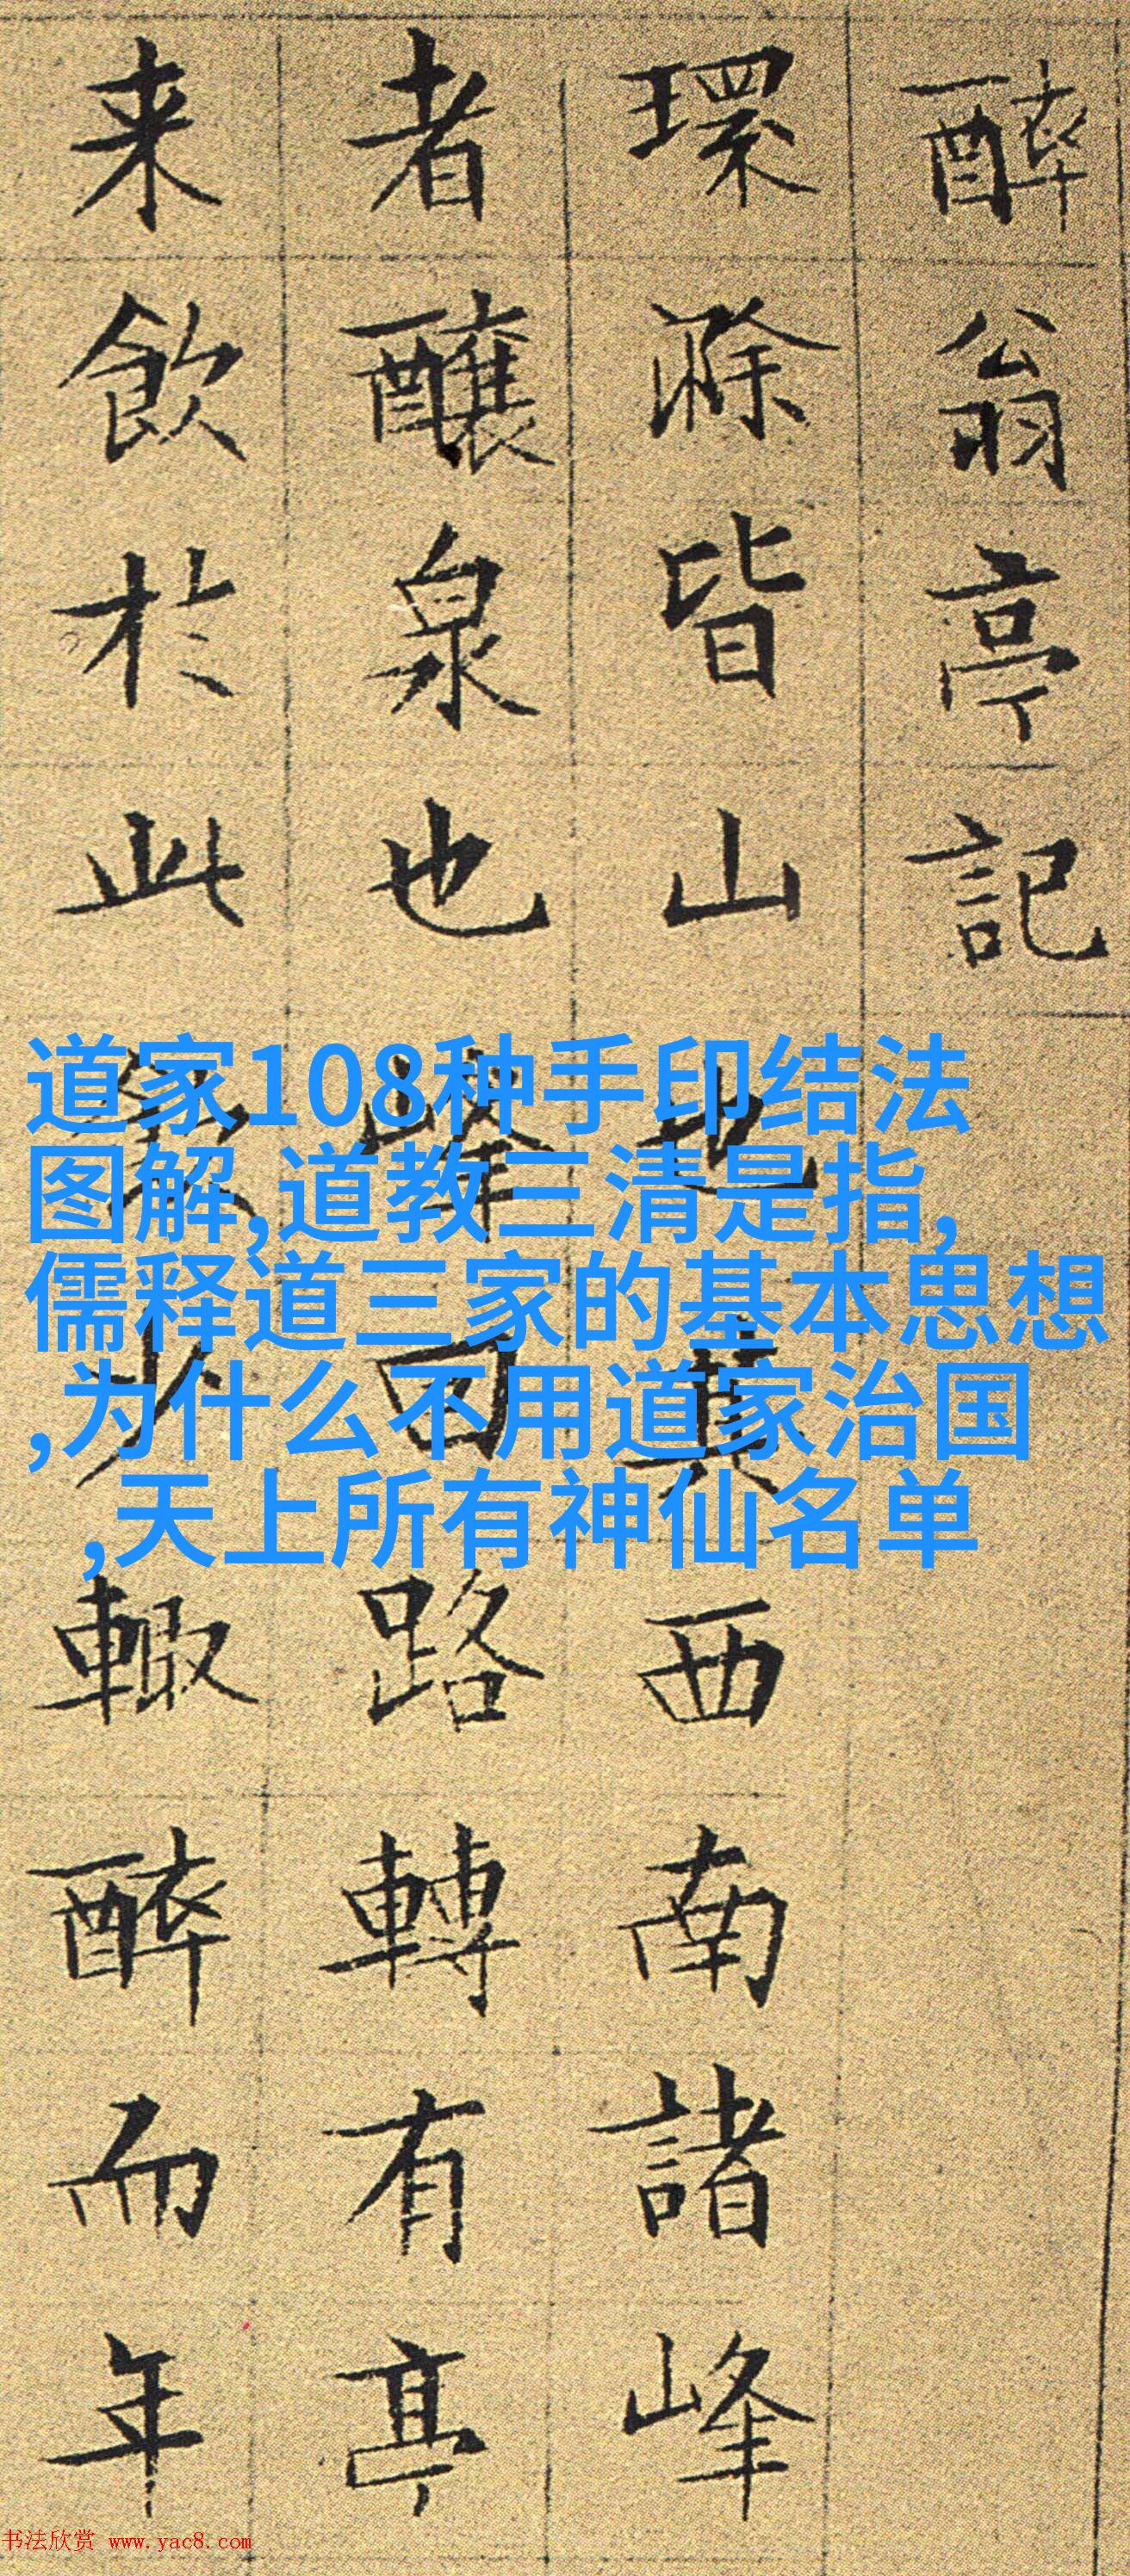 醉翁亭記
環滁皆山也其西南諸峰
者釀泉也峰回路轉有亭
来飲於此少輒醉而年
道家108种手印结法
图解,道教三清是指,
儒释道三家的基本思想
,为什么不用道家治国
,天上所有神仙名单
书法欣赏 www.yac8.com